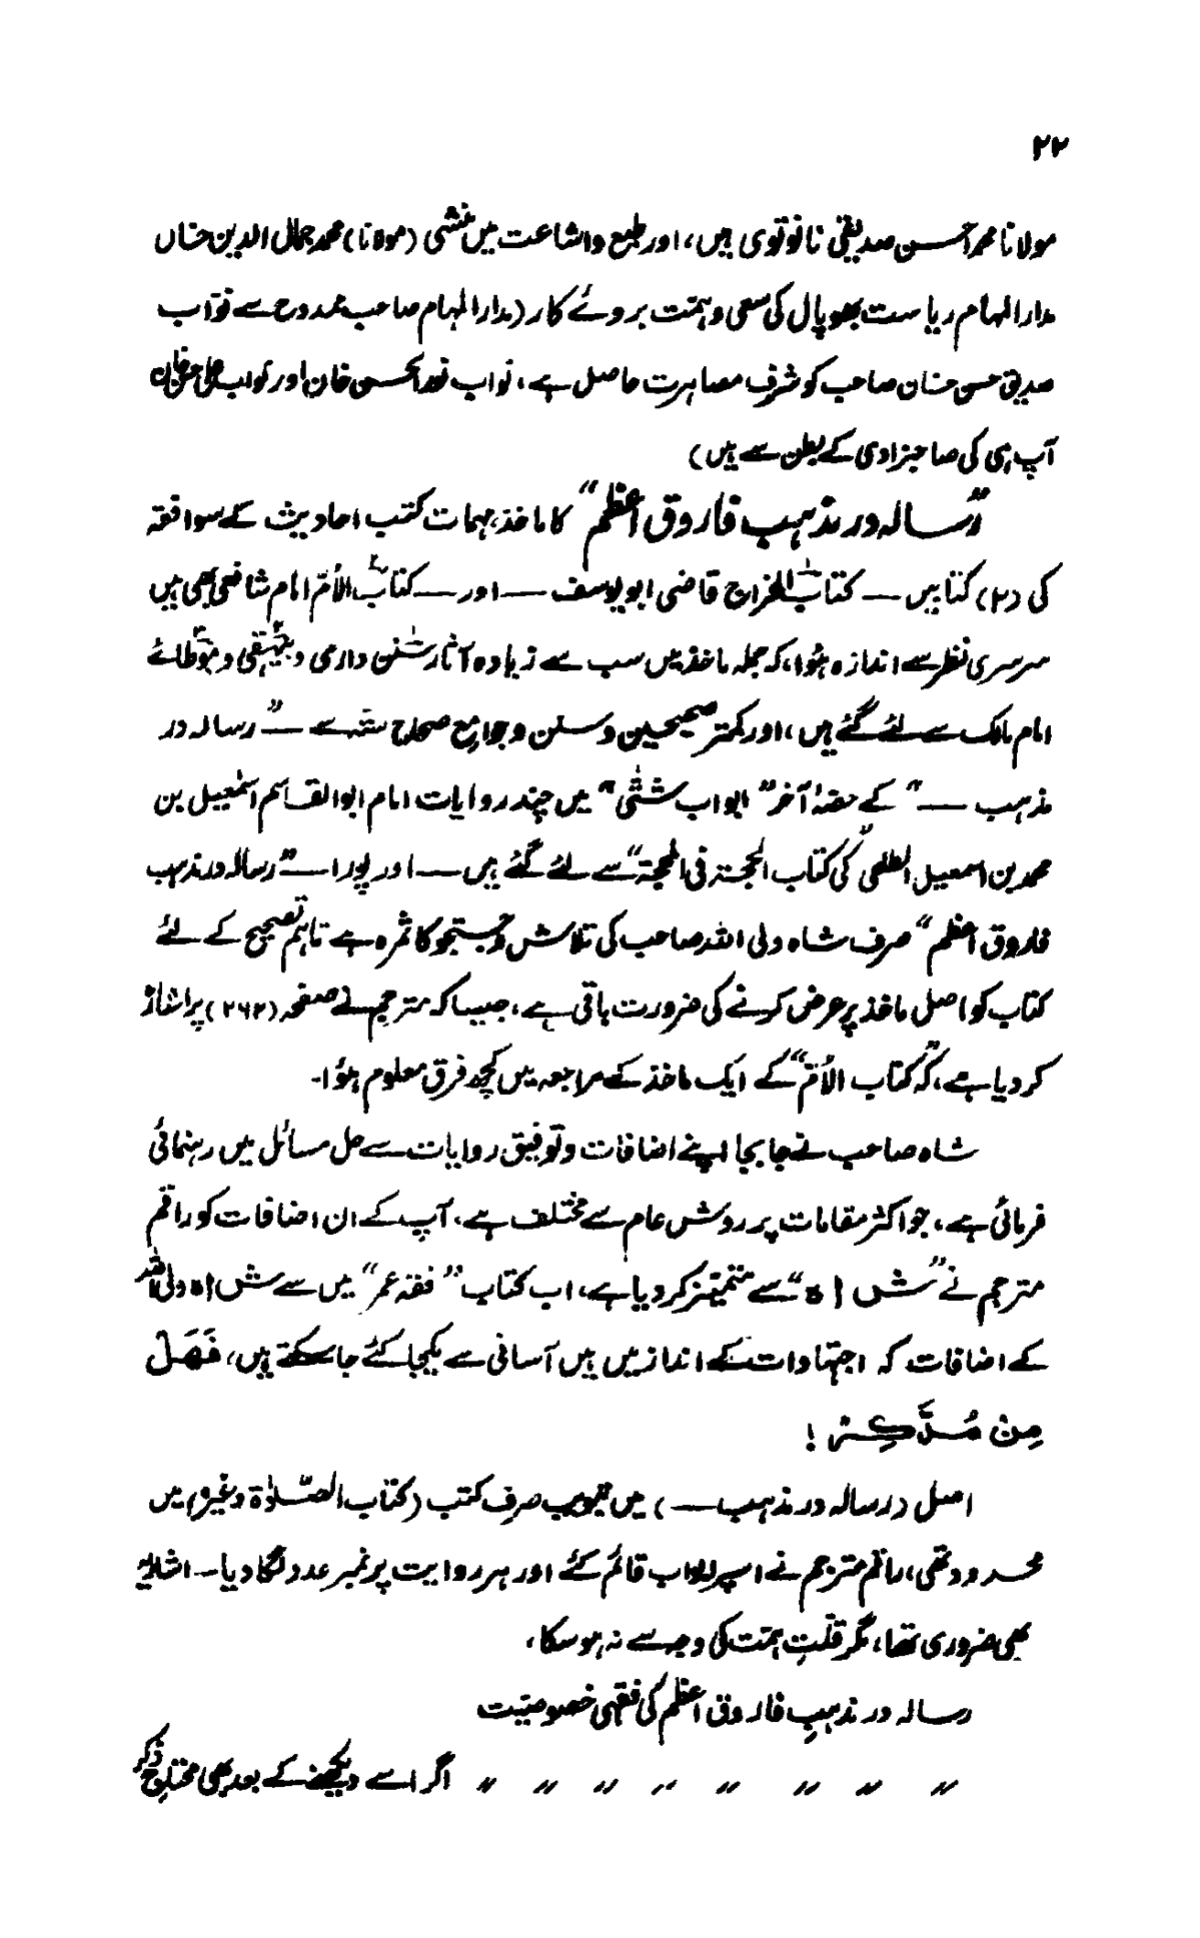 ۲۲
مولانا محمد احسن صدیقی نانوتوی ہیں، اور طبع و اشاعت میں منشی (مولانا) محمد جمال الدین خاں
مدار المہام ریاست بھوپال کی سعی و ہمّت بروئے کار (مدار المہام صاحب ممدوح سے نوّاب
صدیق حسن خان صاحب کو شرف مصاہرت حاصل ہے، نواب نور الحسن خان اور نواب علی حسن خان
آپ ہی کی صاحبزادی کے بطن سے ہیں)
”رسالہ در مذہب فاروق اعظم“ کا ماخذ، مہمات کتب احادیث کے سوا فقہ
کی (۲) کتابیں — کتاب الخراج قاضی ابو یوسف — اور — کتاب الأمّ امام شافعی بھی ہیں
سرسری نظر سے اندازہ ہُوا، کہ جملہ ماخذ میں سب سے زیادہ آثار سُنن دارمی و بیہقی و موطّائے
امام مالک سے لئے گئے ہیں، اور کمتر صحیحین و سنن و جوامع صحاح ستّہ سے — ”رسالہ در
مذہب —“ کے حصّۂ آخر ”ابواب شتّٰی“ میں چند روایات امام ابو القاسم اسمٰعیل بن
محمد بن اسمعیل الطلحی کی ”کتاب الحجۃ فی المحجۃ“ سے لئے گئے ہیں — اور پورا — ”رسالہ در مذہب
فاروق اعظم“ صرف شاہ ولی اللہ صاحب کی تلاش و جستجو کا ثمرہ ہے تاہم تصحیح کے لئے
کتاب کو اصل ماخذ پر عرض کرنے کی ضرورت باقی ہے، جیسا کہ مترجم نے صفحہ (۲۶۲) پر اشارہ
کر دیا ہے، کہ ”کتاب الأمّ“ کے ایک ماخذ کے مراجعہ میں کچھ فرق معلوم ہُوا۔
شاہ صاحب نے جا بجا اپنے اضافات و توفیق روایات سے حل مسائل میں رہنمائی
فرمائی ہے، جو اکثر مقامات پر روش عام سے مختلف ہے، آپ کے ان اضافات کو راقم
مترجم نے ”ش ا ہ“ سے متمیّز کر دیا ہے، اب کتاب ”فقہ عمر“ میں سے ش ا ہ ولی اللہ
کے اضافات کہ اجتہادات کے انداز میں ہیں آسانی سے یکجا کئے جا سکتے ہیں، فَهَلْ
مِنْ مُدَّكِرْ !
اصل (رسالہ در مذہب —) میں تبویب صرف کتب (کتاب الصّلوٰۃ وغیرہ) میں
محدود تھی، راقم مترجم نے اسپر ابواب قائم کئے اور ہر روایت پر نمبر عدد لگا دیا — اشاریہ
بھی ضروری تھا، مگر قلّتِ ہمّت کی وجہ سے نہ ہو سکا،
رسالہ در مذہبِ فاروق اعظم کی فقہی خصوصیّت
〃 〃 〃 〃 〃 〃 〃 〃 اگر اسے دیکھنے کے بعد بھی محتاج ذکر